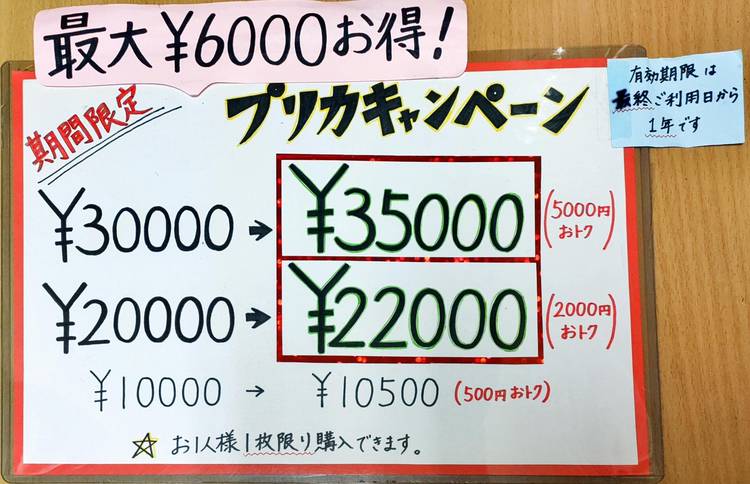 最大¥6000お得!
有効期限は
最終ご利用日から
1年です
期間限定
プリカキャンペーン
¥30000→¥35000(5000円おトク)
¥20000→¥22000(2000円おトク)
¥10000→¥10500(500円おトク)
☆お1人様1枚限り購入できます。